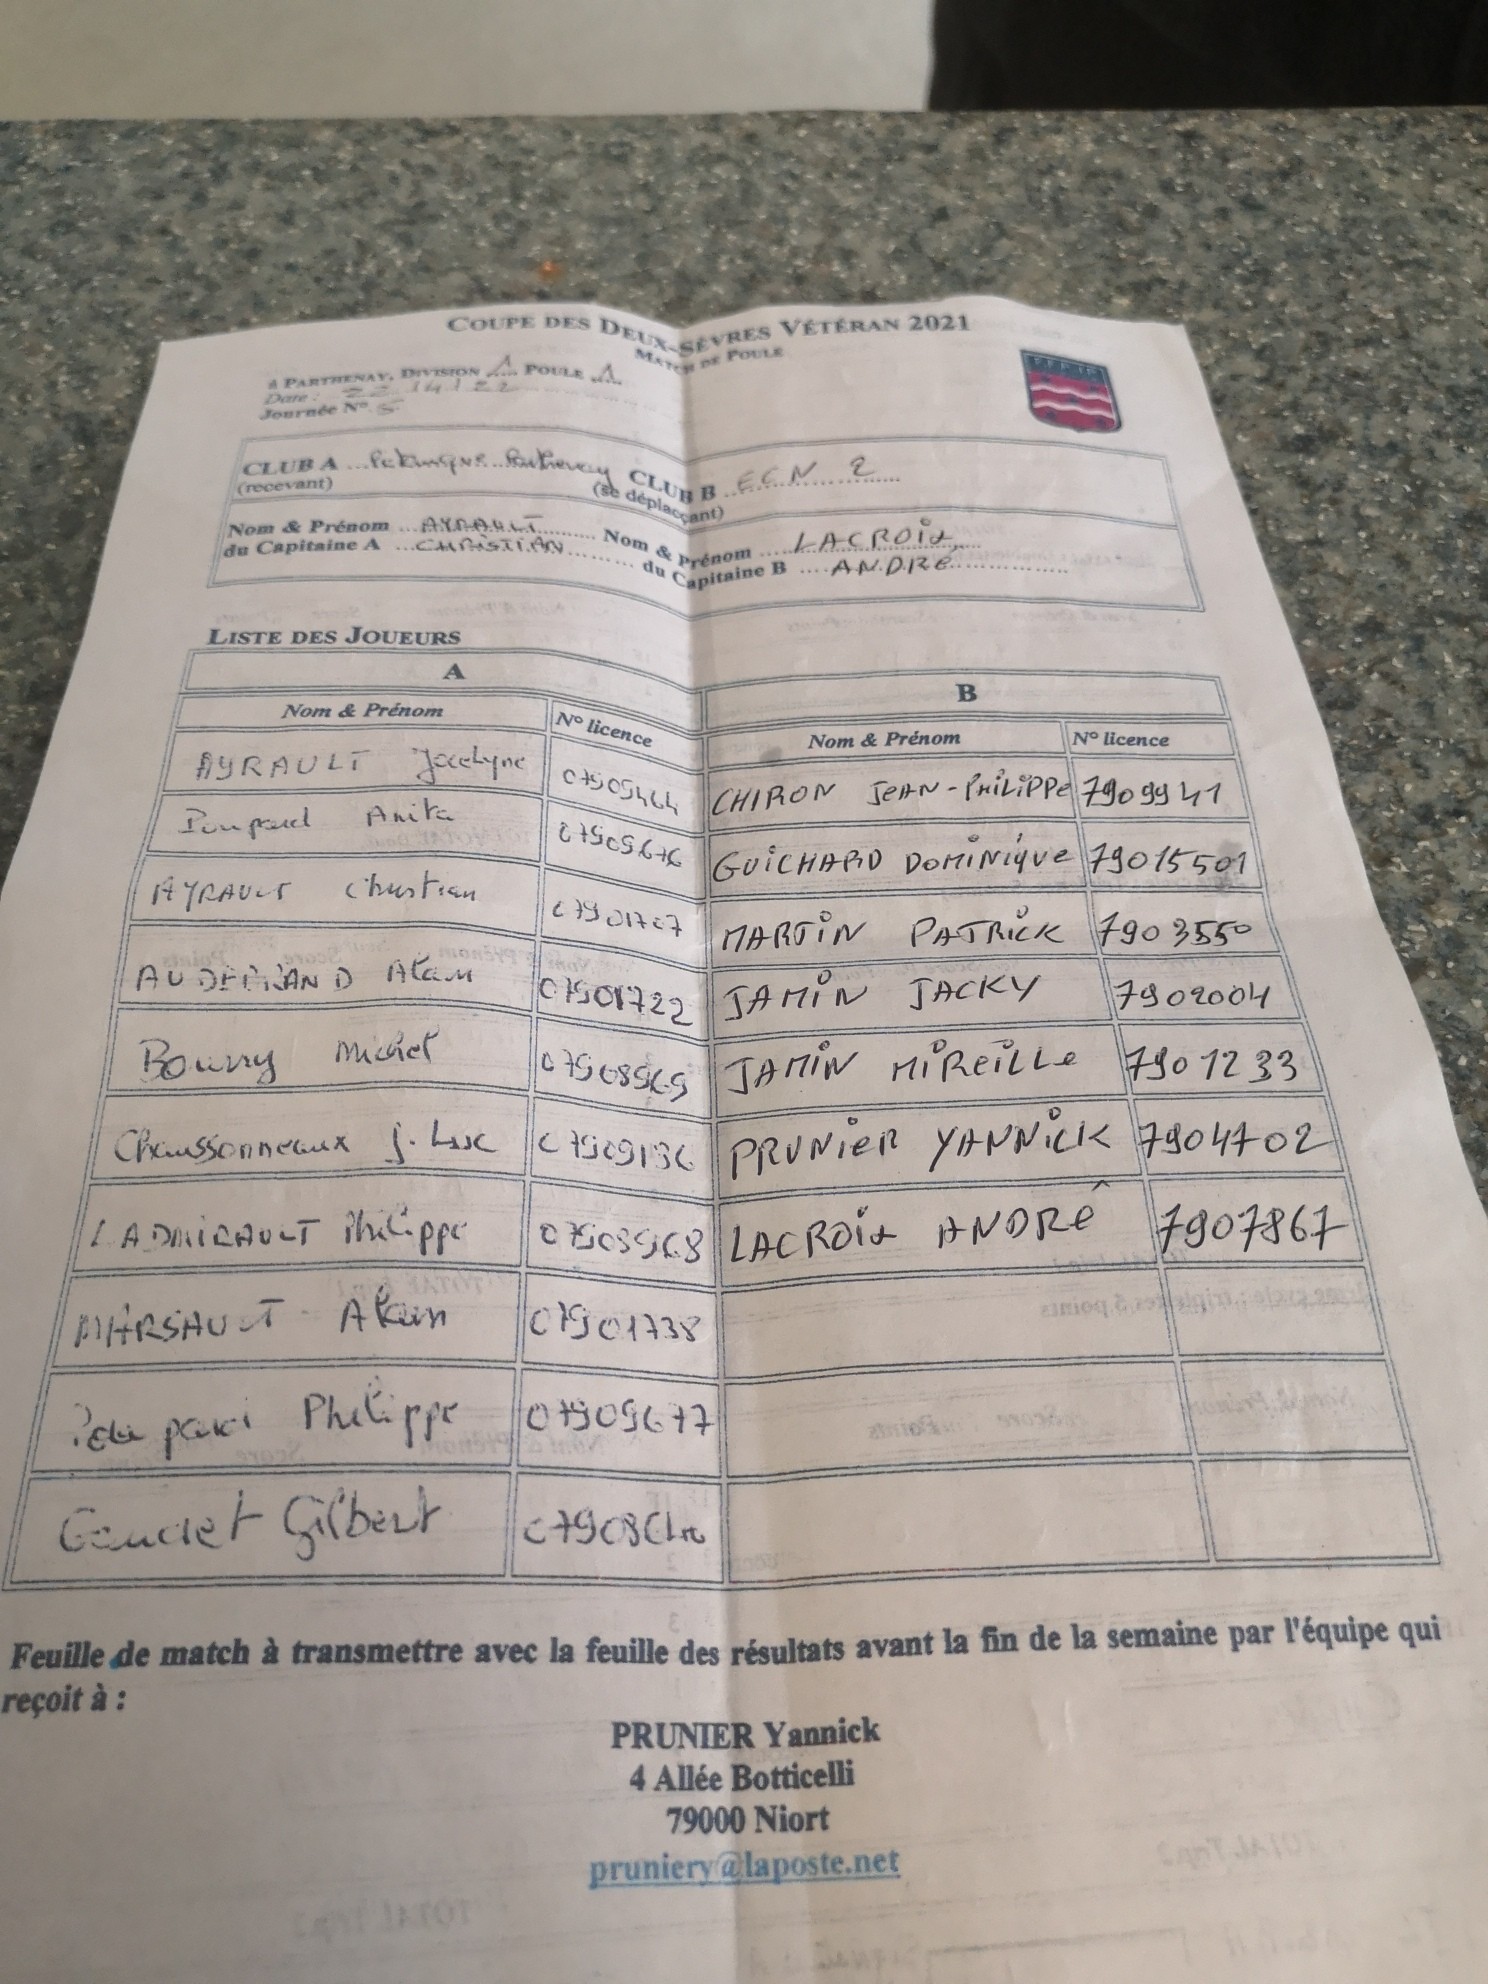 COUPE DES DEUX-SÈVRES VÉTÉRAN 2021
MATCH DE POULE
à PARTHENAY, DIVISION A POULE A
Date :
Journée N° 5
CLUB A ... Pétanque Parthenay CLUB B ECN 2
(recevant) (se déplaçant)
Nom & Prénom ... AYRAULT ... Nom & Prénom ... LACROIX
du Capitaine A ... CHRISTIAN ... du Capitaine B ... ANDRÉ ...
LISTE DES JOUEURS
A B
Nom & Prénom N° licence Nom & Prénom N° licence
AYRAULT Jocelyne 07909464 CHIRON JEAN-PHILIPPE 7909941
Poupard Anita 07909676 GUICHARD DOMINIQUE 79015501
AYRAULT Christian 07901707 MARTIN PATRICK 7903550
AUDEBRAND Alain 07901722 JAMIN JACKY 7909004
Bourry Michel 07908969 JAMIN MIREILLE 7901233
Chaussonneaux J. Luc 07909136 PRUNIER YANNICK 7904702
LADMIRAULT Philippe 07908968 LACROIX ANDRÉ 7907867
MARSAULT Alain 07901738
Philippe 07909677
Gilbert
Feuille de match à transmettre avec la feuille des résultats avant la fin de la semaine par l'équipe qui
reçoit à :
PRUNIER Yannick
4 Allée Botticelli
79000 Niort
pruniery@laposte.net